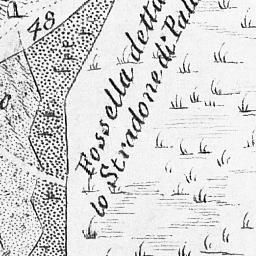 48
Fossella detta
lo Stradone di Palu